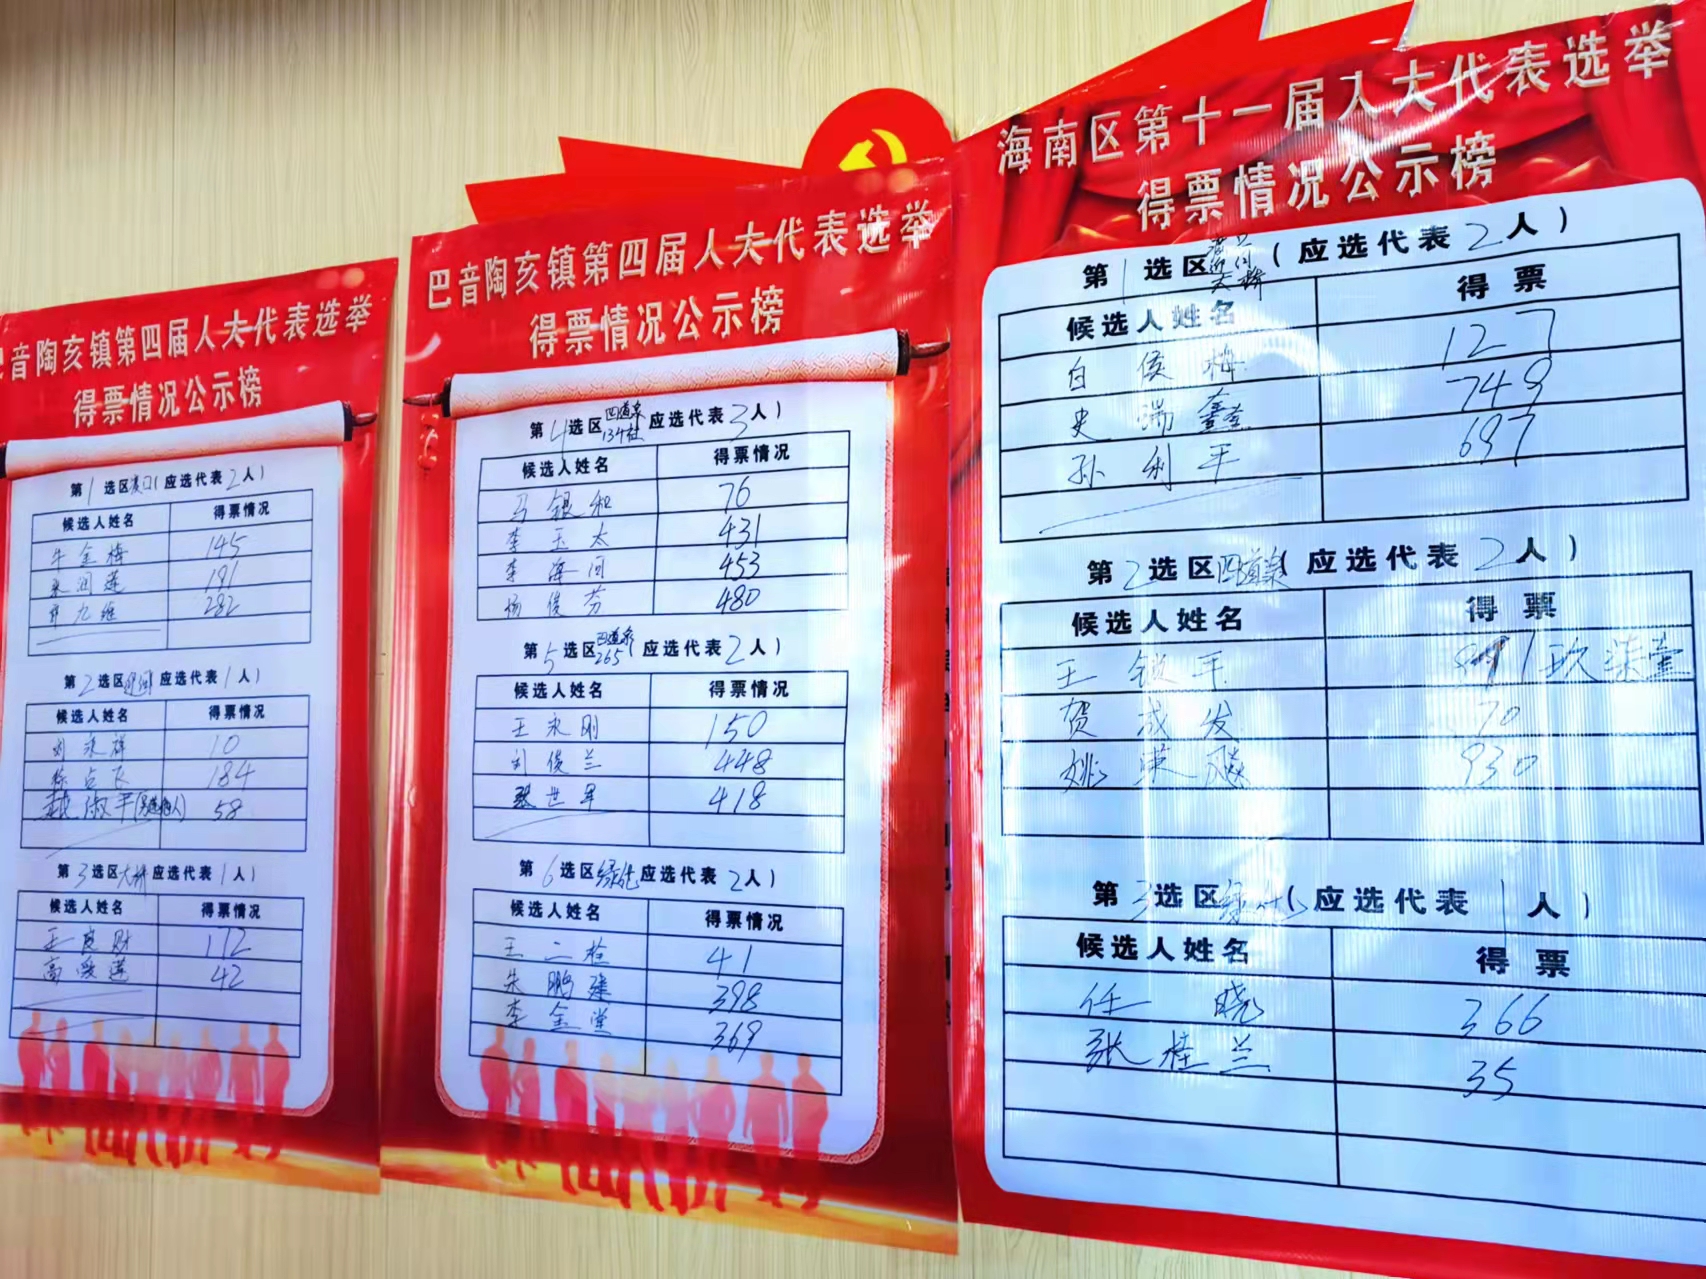 巴音陶亥镇第四届人大代表选举
得票情况公示榜
第1选区渡口(应选代表2人)
候选人姓名 得票情况
牛金梅 145
191
282
第2选区 应选代表1人)
候选人姓名 得票情况
刘永祥 10
184
淑平 58
第3选区大桥应选代表1人)
候选人姓名 得票情况
王良财 172
高爱莲 42
巴音陶亥镇第四届人大代表选举
得票情况公示榜
第4选区四道泉134村应选代表3人)
候选人姓名 得票情况
马银和 76
李玉太 431
李海河 453
杨俊芬 480
第5选区四道泉265应选代表2人)
候选人姓名 得票情况
王永刚 150
刘俊兰 448
张世军 418
第6选区绿化应选代表2人)
候选人姓名 得票情况
王二栓 41
朱鹏 398
李金堂 369
海南区第十一届人大代表选举
得票情况公示榜
第1选区(应选代表2人)
候选人姓名 得票
白俊梅 127
史瑞鑫 749
孙利平 697
第2选区四道泉(应选代表2人)
候选人姓名 得票
王锁平 玖柒壹
贺成发 70
姚 930
第3选区绿化(应选代表1人)
候选人姓名 得票
任晓 366
张桂兰 35